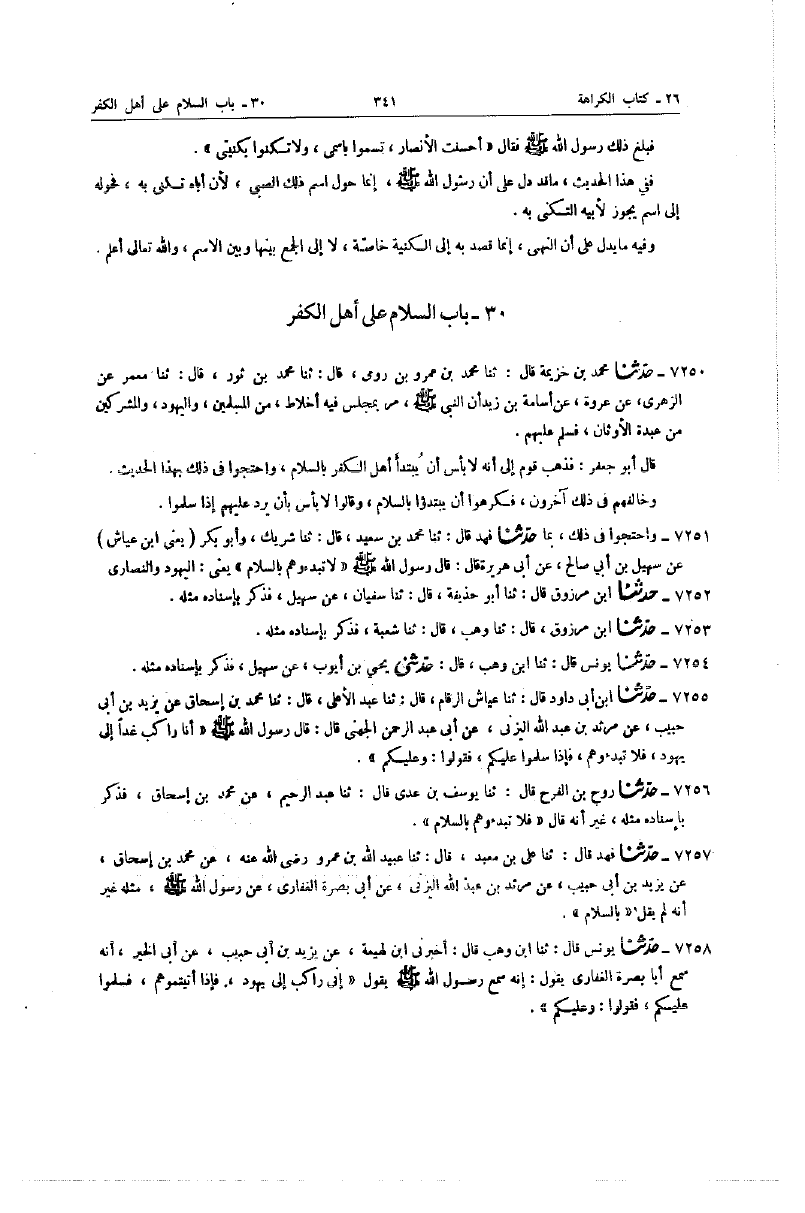 ٢٦ ـ كتاب الكراهة ٣٤١ ٣٠ ـ باب السلام على أهل الكفر
فبلغ ذلك رسول الله ﷺ فقال « أحسنت الأنصار ، تسموا باسمى ، ولا تكنوا بكنيتى » .
فنى هذا الحديث ، ماقد دل على أن رسول الله ﷺ ، إنما حول اسم ذلك الصبى ، لأن أباه تكنى به ، فحوله
إلى اسم يجوز لأبيه التكنى به .
وفيه مايدل على أن النهى ، إنما قصد به إلى الكنية خاصّة ، لا إلى الجمع بينها وبين الاسم ، والله تعالى أعلم .
٣٠ ـ باب السلام على أهل الكفر
٧٢٥٠ ـ حدّثنا محمد بن خزيمة قال : ثنا محمد بن عمرو بن رومى ، قال : ثنا محمد بن ثور ، قال : ثنا معمر عن
الزهرى، عن عروة ، عن أسامة بن زيد أن النبى ﷺ ، مر بمجلس فيه أخلاط ، من المسلمين ، واليهود ، والمشركين
من عبدة الأوثان ، فسلم عليهم .
قال أبو جعفر : فذهب قوم إلى أنه لا بأس أن يُبتدأ أهل الكفر بالسلام ، واحتجوا فى ذلك بهذا الحديث .
وخالفهم فى ذلك آخرون ، فكرهوا أن يبتدؤا بالسلام ، وقالوا لا بأس بأن يرد عليهم إذا سلموا .
٧٢٥١ ـ واحتجوا فى ذلك ، بما حدّثنا فهد قال : ثنا محمد بن سعيد ، قال : ثنا شريك ، وأبو بكر ( يعنى ابن عياش )
عن سهيل بن أبي صالح ، عن أبى هريرة قال : قال رسول الله ﷺ « لا تبدءوهم بالسلام » يعنى : اليهود والنصارى
٧٢٥٢ ـ حدثنا ابن مرزوق قال : ثنا أبو حذيفة ، قال : ثنا سفيان ، عن سهيل ، فذكر بإسناده مثله .
٧٢٥٣ ـ حدّثنا ابن مرزوق ، قال : ثنا وهب ، قال : ثنا شعبة ، فذكر بإسناده مثله .
٧٢٥٤ ـ حدّثنا يونس قال : ثنا ابن وهب ، قال : حدّثنى يحيى بن أيوب ، عن سهيل ، فذكر بإسناده مثله .
٧٢٥٥ ـ حدّثنا ابن أبى داود قال : ثنا عياش الرقام ، قال : ثنا عبد الأعلى ، قال : ثنا محمد بن إسحاق عن يزيد بن أبى
حبيب ، عن مرثد بن عبد الله اليزنى ، عن أبى عبد الرحمن الجهنى قال : قال رسول الله ﷺ « أنا راكب غداً إلى
يهود ، فلا تبدءوهم ، فإذا سلموا عليكم ، فقولوا : وعليكم » .
٧٢٥٦ ـ حدّثنا روح بن الفرح قال : ثنا يوسف بن عدى قال : ثنا عبد الرحيم ، عن محمد بن إسحاق ، فذكر
بإسناده مثله ، غير أنه قال « فلا تبدءوهم بالسلام » .
٧٢٥٧ ـ حدّثنا فهد قال : ثنا على بن معبد ، قال : ثنا عبيد الله بن عمرو رضى الله عنه ، عن محمد بن إسحاق ،
عن يزيد بن أبى حبيب ، عن مرثد بن عبد الله اليزنى ، عن أبى بصرة الغفارى ، عن رسول الله ﷺ ، مثله غير
أنه لم يقل « بالسلام » .
٧٢٥٨ ـ حدّثنا يونس قال : ثنا ابن وهب قال : أخبرنى ابن لهيعة ، عن يزيد بن أبى حبيب ، عن أبى الخير ، أنه
سمع أبا بصرة الغفارى يقول : إنه سمع رسول الله ﷺ يقول « إنى راكب إلى يهود ، فإذا أتيتموهم ، فسلموا
عليكم ، فقولوا : وعليكم » .